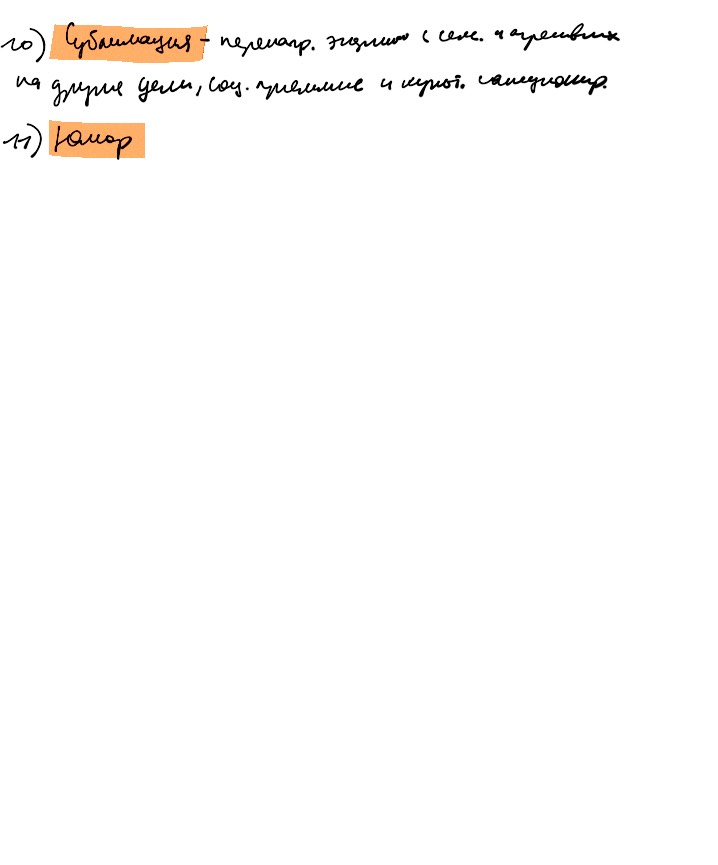 10) Сублимация - перенапр. энергии с секс. и агрессивных
на другие цели, соц. приемлимые и культ. санкционир.
11) Юмор